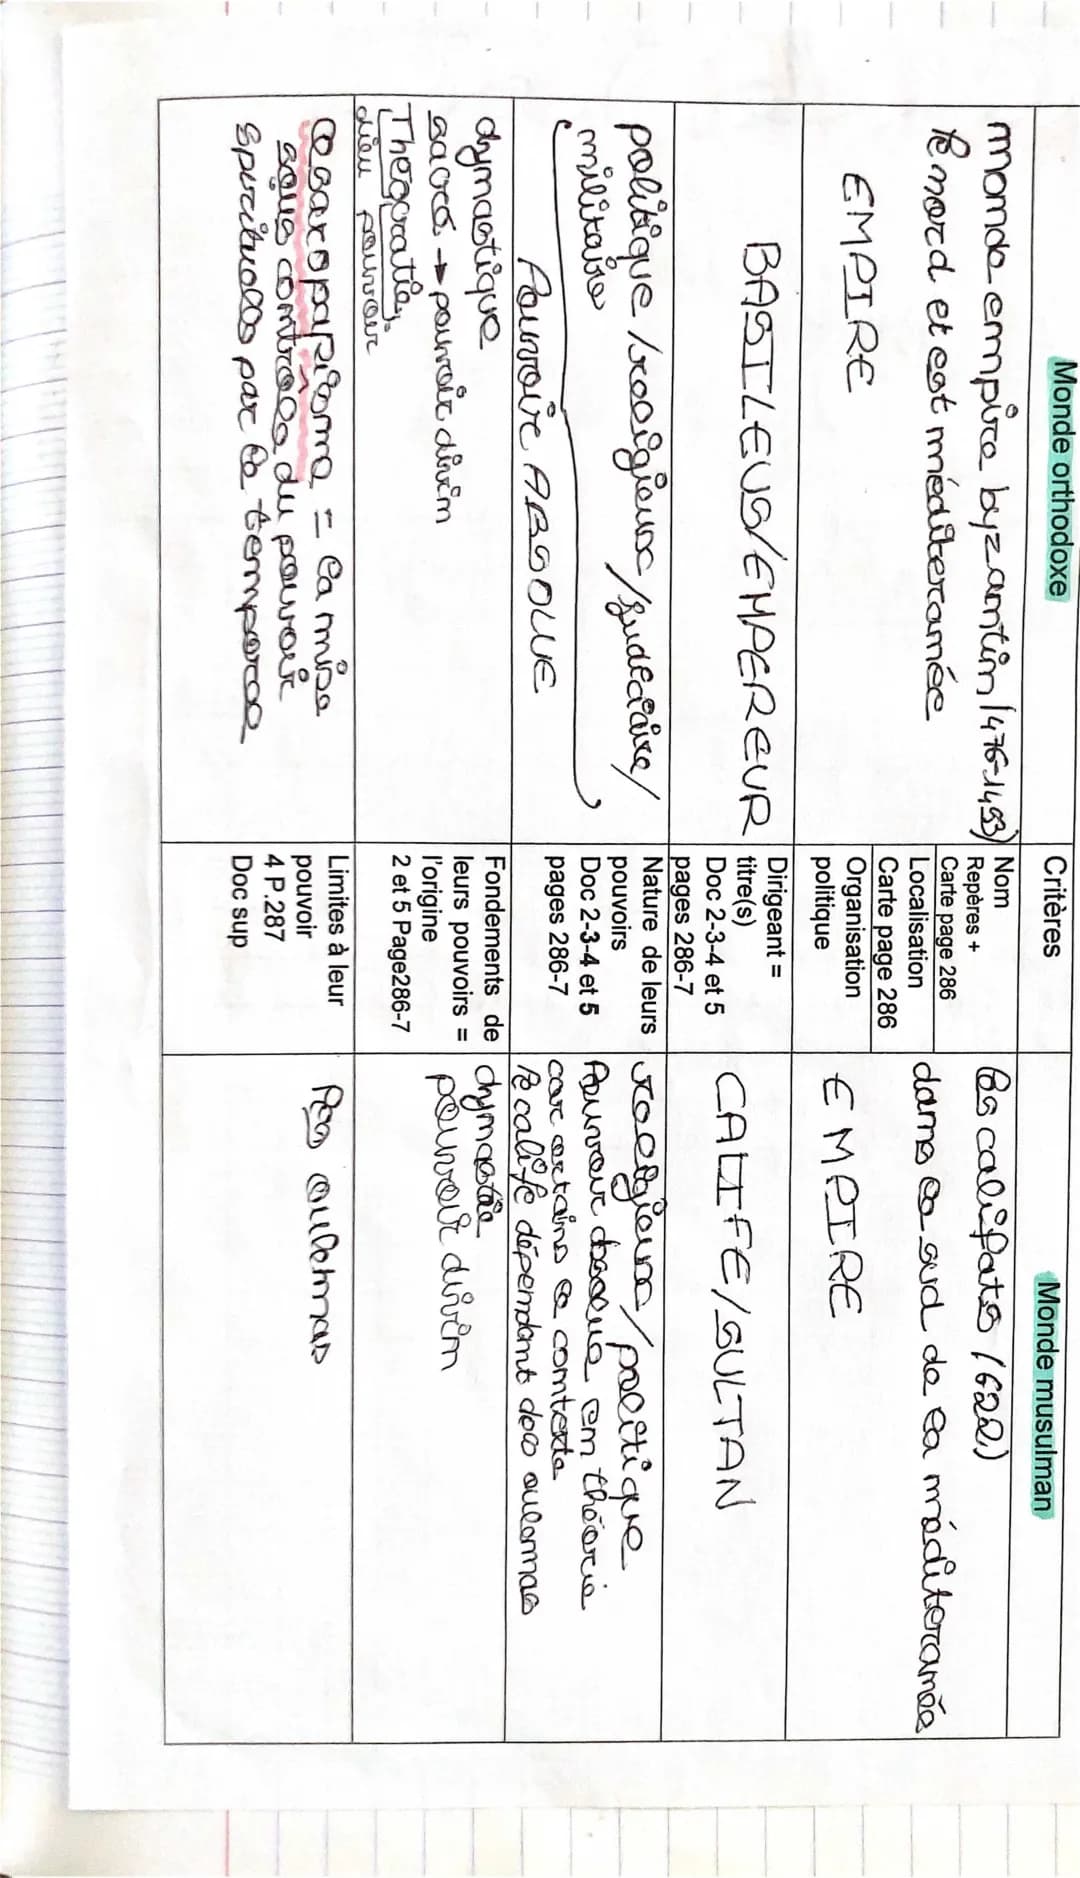 Monde orthodoxe
Critères
Monde musulman
monde empire byzantin (476-1453)
Nom
Repères +
Carte page 286
les califats (622)
le nord et est méditerranée
Localisation
Carte page 286
dans le sud de la méditerranée
EMPIRE
Organisation
politique
EMPIRE
BASILEUS/EMPEREUR
Dirigeant =
titre(s)
Doc 2-3-4 et 5
pages 286-7
CALIFE/SULTAN
politique/religieux/judiciaire/
militaire
Pouvoir ABSOLUE
Nature de leurs
pouvoirs
Doc 2-3-4 et 5
pages 286-7
religieux/politique
Pouvoir absolue en théorie
car certains le conteste
le calife dépendant des oulemas
dynastique
sacré → pouvoir divin
Théocratie
dieu pouvoir
Fondements de
leurs pouvoirs =
l'origine
2 et 5 Page286-7
dynastie
pouvoir divin
Césaropapisme = la mise
sous contrôle du pouvoir
spirituelle par le temporel
Limites à leur
pouvoir
4 P.287
Doc sup
les oulemas